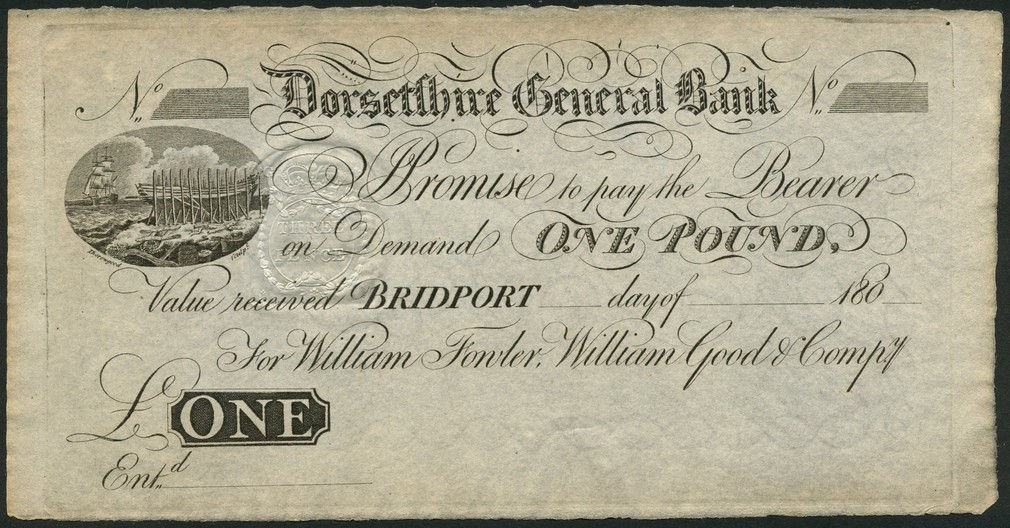 No Dorsetshire General Bank No
I Promise to pay the Bearer
on Demand ONE POUND,
THREE
PENCE
Value received BRIDPORT ___ day of ___ 180_
For William Fowler, William Good & Compy
£ ONE
Entd